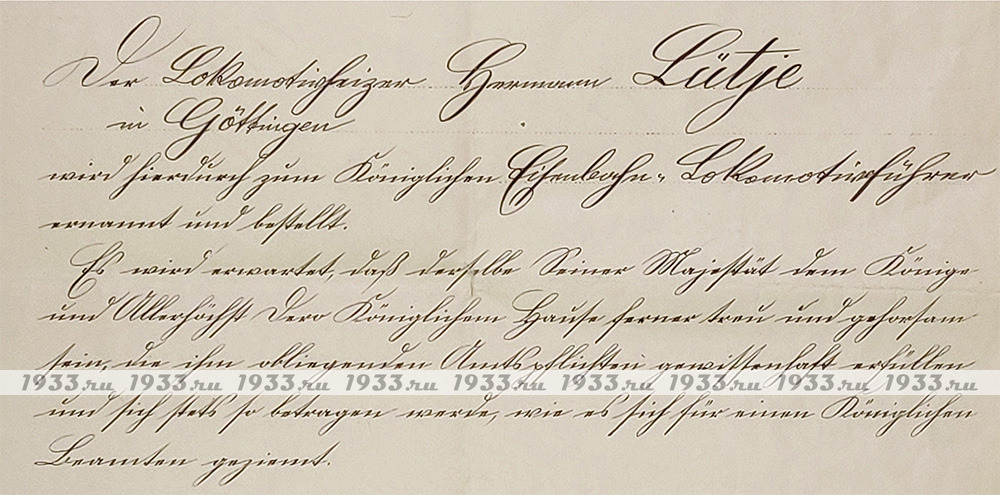 Der Lokomotivheizer Hermann Lütje
in Göttingen
wird hierdurch zum Königlichen Eisenbahn-Lokomotivführer
ernannt und bestellt.
Es wird erwartet, daß derselbe Seiner Majestät dem Könige
und Allerhöchst Dero Königlichem Hause ferner treu und gehorsam
sein, die ihm obliegenden Amtspflichten gewissenhaft erfüllen
1933.ru 1933.ru 1933.ru 1933.ru 1933.ru 1933.ru 1933.ru 1933.ru 1933.ru
und sich stets so betragen werde, wie es sich für einen Königlichen
Beamten geziemt.